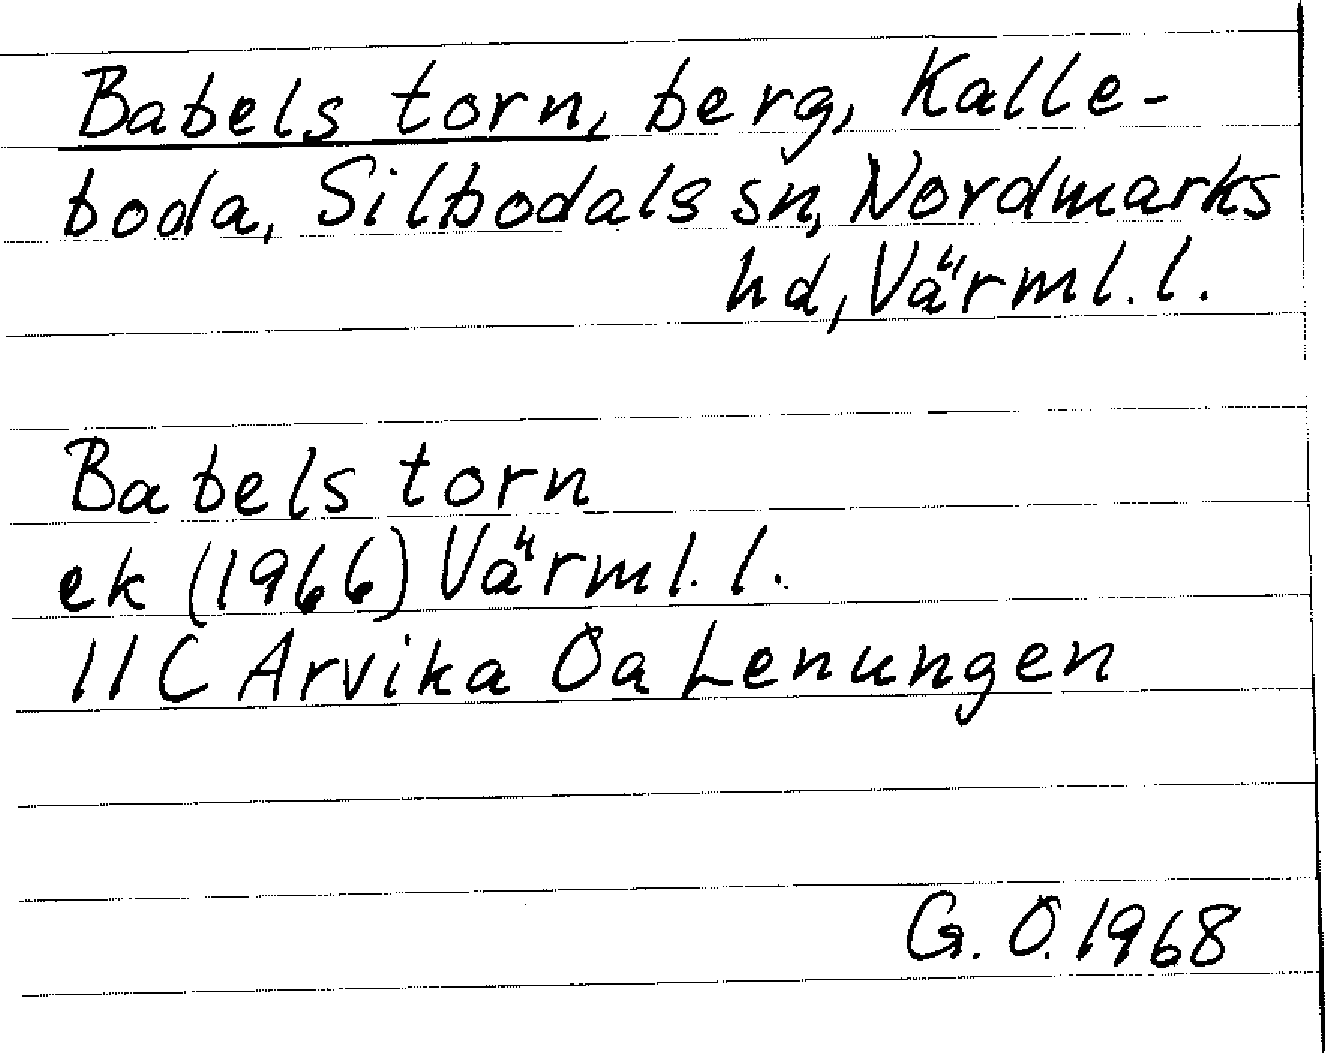 Babels torn, berg, Kalle-
boda, Silbodals sn, Nordmarks
hd, Värml. l.
Babels torn
ek (1966) Värml. l.
11C Arvika Öa Lenungen
G. O. 1968